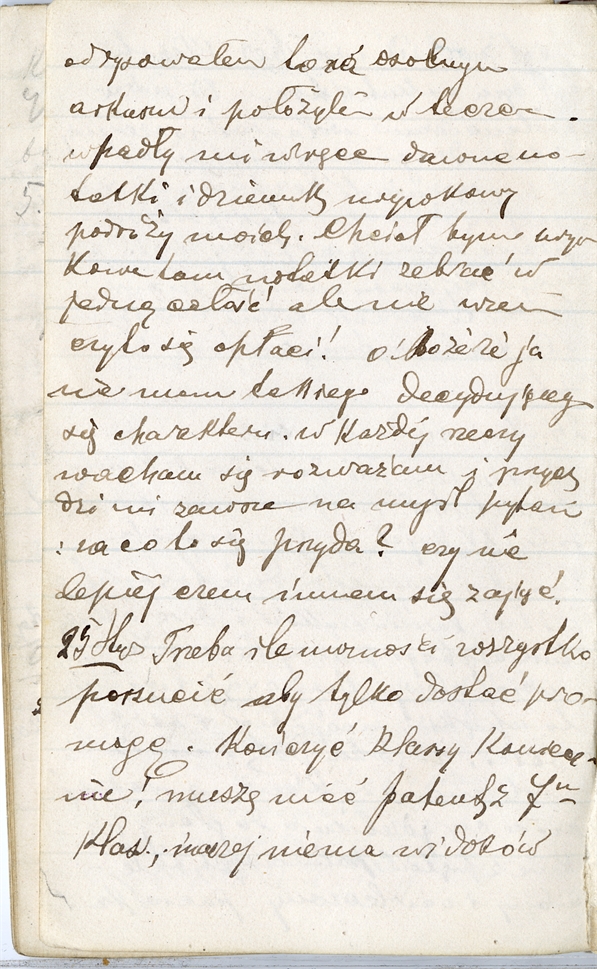 odrysowałem to na osobnym
arkuszu i położyłem w teczce.
wpadły mi w ręce dawne no-
tatki i dziennik
podróży moich. Chciał bym
tam notatki zebrać w
jedną całość ale nie wiem
czy to się opłaci! o! Boże że ja
nie mam takiego decydującego
się charakteru. w każdej rzeczy
wacham się rozważam i przycho
dzi mi zawsze na myśl pytanie
: na co to się przyda? czy nie
lepiej czem innem się zająć.
25 Trzeba ile możności wszystko
porzucić aby tylko dostać pro-
mogę. Kończyć klassy koniecz-
nie! muszę mieć patent z 7u
klas., inaczej niema widoków